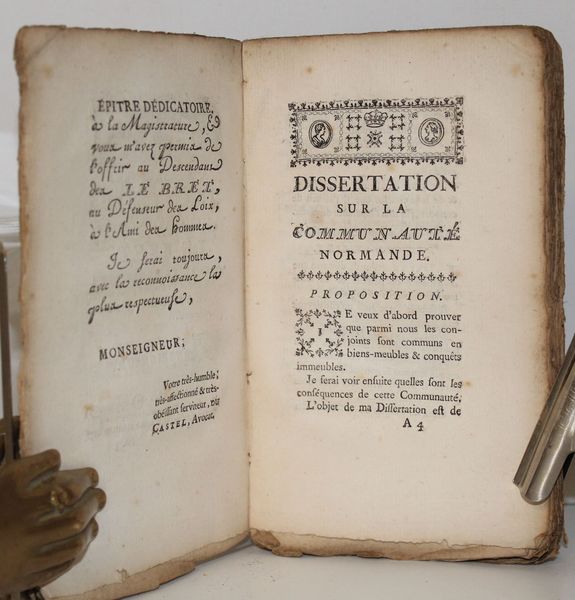 ÉPITRE DÉDICATOIRE.
à la Magistrature, &
vous m'avez permis de
l'offrir au Descendant
des LE BRET,
au Défenseur des Loix,
à l'Ami des hommes.
Je serai toujours,
avec la reconnoissance la
plus respectueuse,
MONSEIGNEUR;
Votre très-humble;
très-affectionné & très-
obéissant serviteur, DU
CASTEL, Avocat.
DISSERTATION
SUR LA
COMMUNAUTÉ
NORMANDE.
PROPOSITION.
JE veux d'abord prouver
que parmi nous les con-
joints sont communs en
biens-meubles & conquêts
immeubles.
Je ferai voir ensuite quelles sont les
conséquences de cette Communauté;
L'objet de ma Dissertation est de
A 4